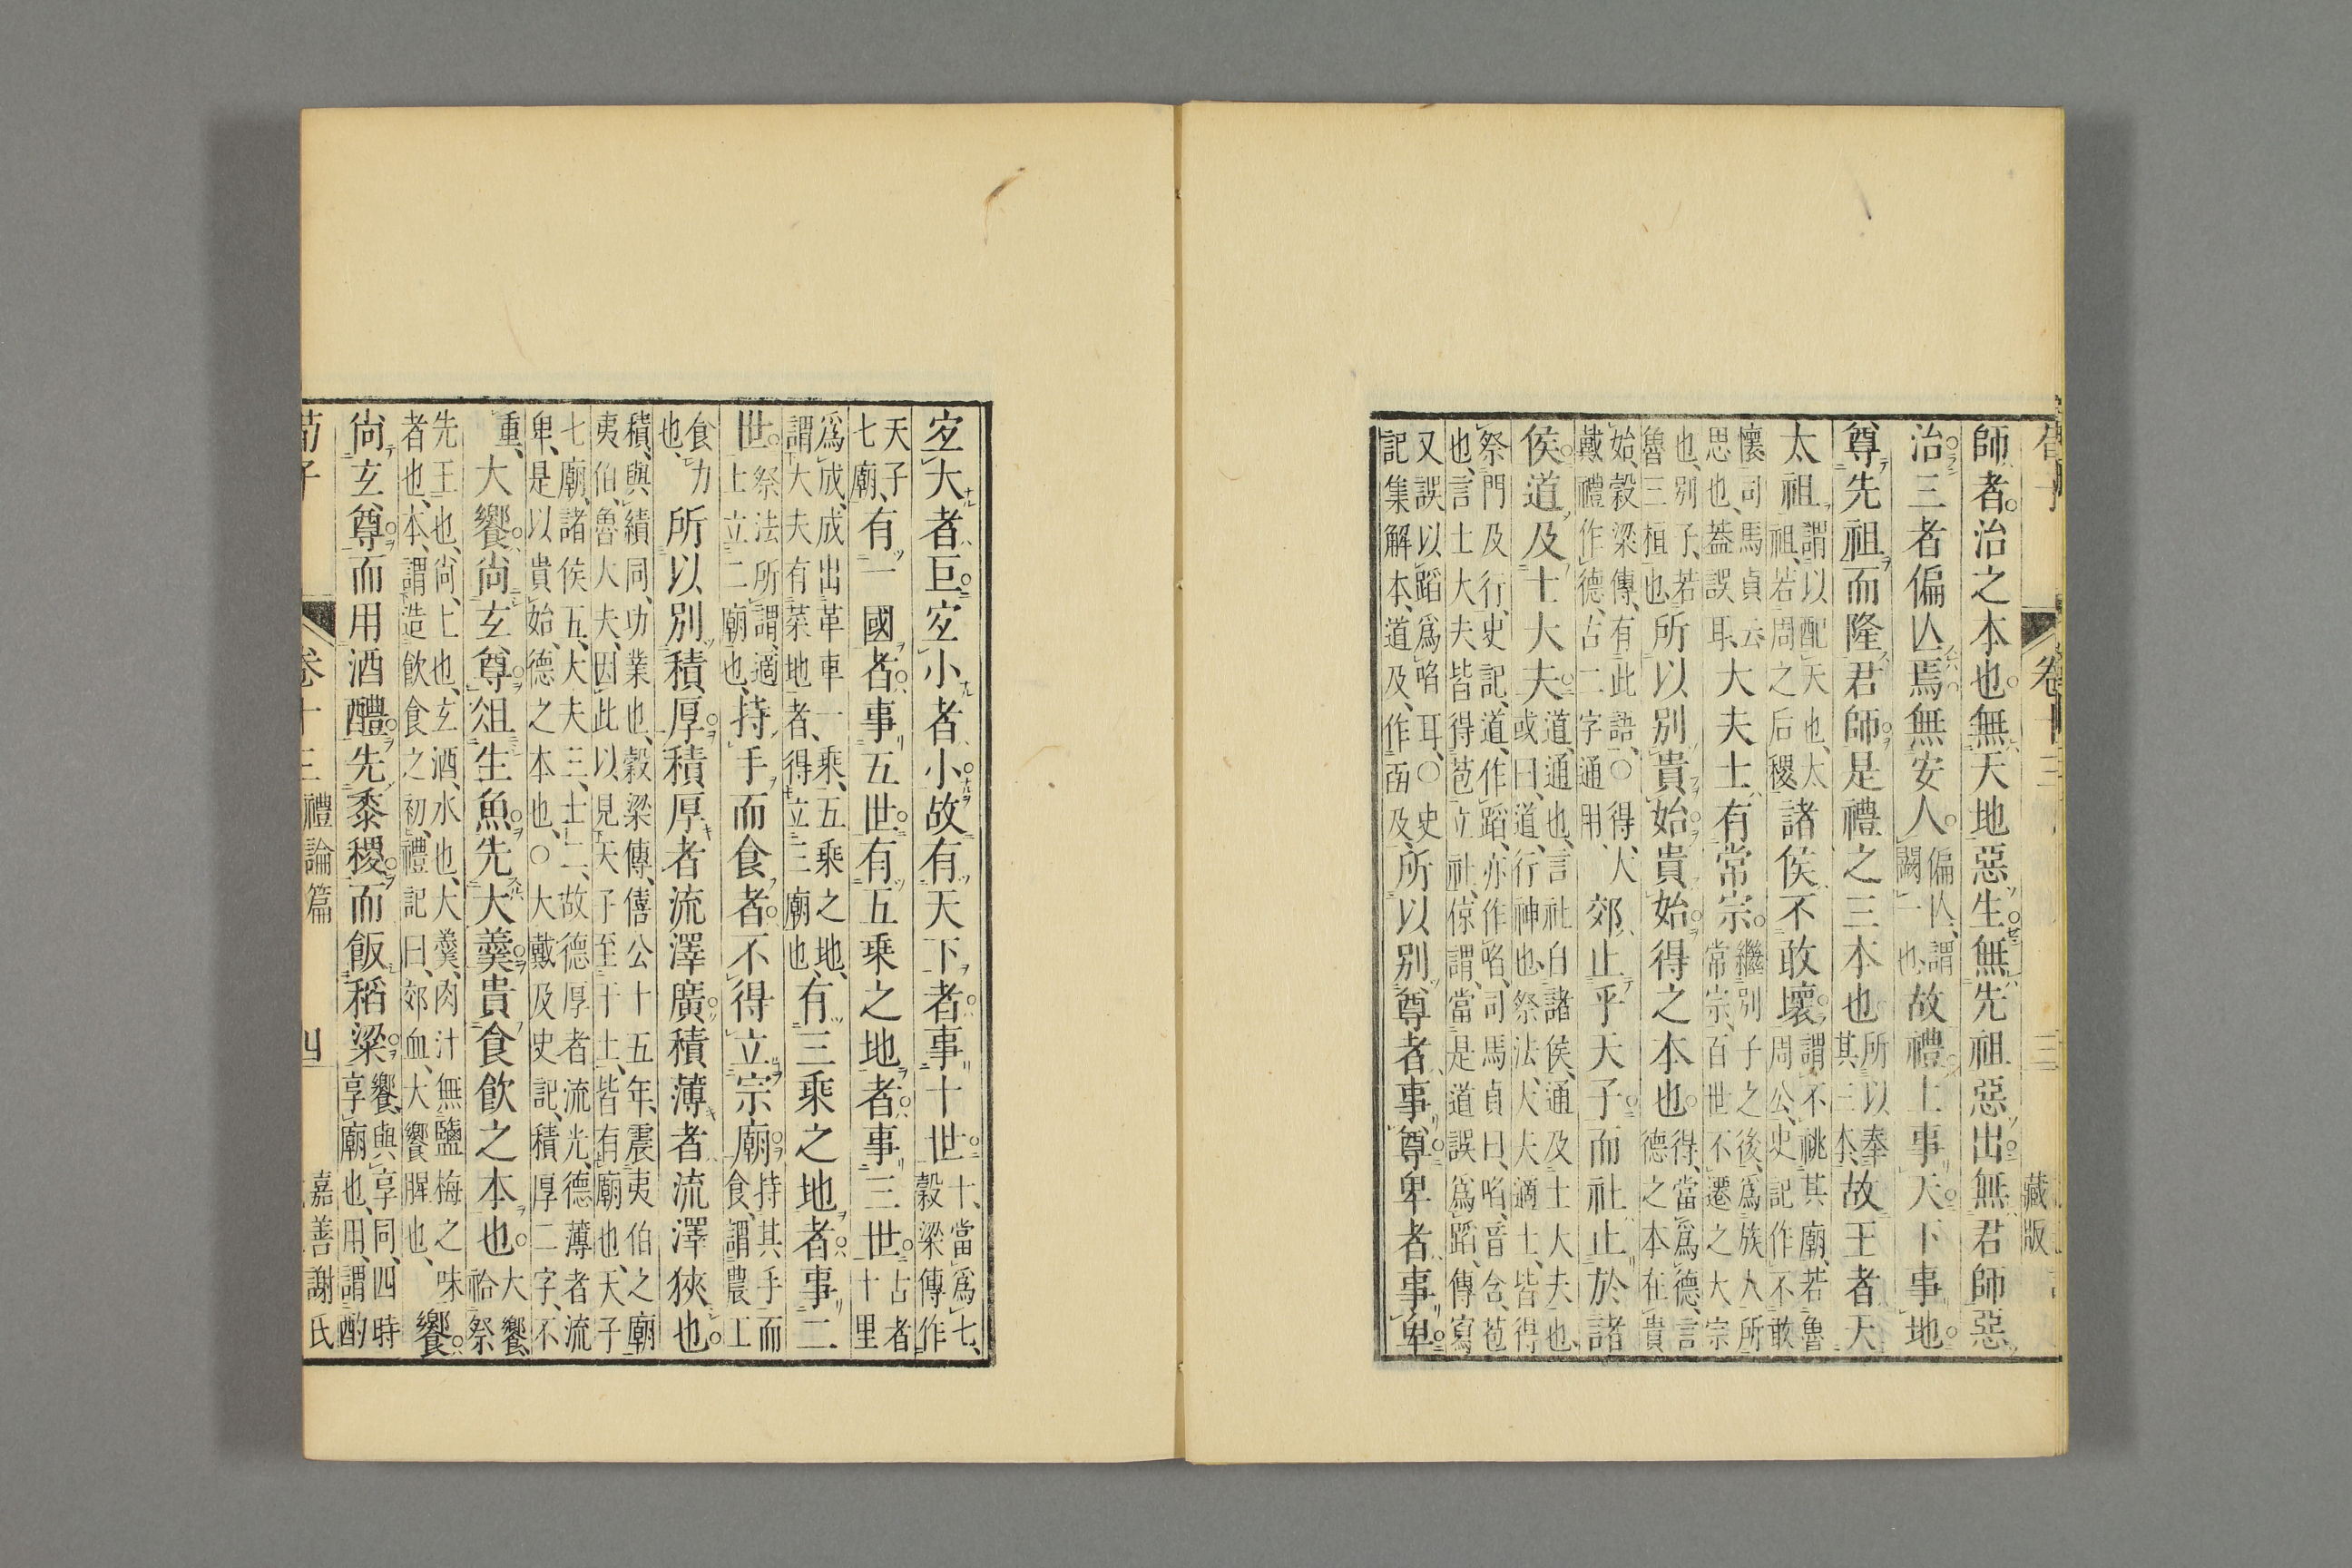 卷十三 三 藏版
師者治之本也無天地惡生無先祖惡出無君師惡
治三者偏亾焉無安人偏亾、謂闕一也、故禮上事天下事地
尊先祖而隆君師是禮之三本也所以奉其三本、故王者天
太祖謂以配天也、太祖、若周之后稷、諸侯不敢壞謂不祧其廟、若魯周公、史記作不敢
懷司馬貞云思也、蓋誤耳、大夫士有常宗繼別子之後、爲族人所常宗、百世不遷之大宗
也、別子、若魯三桓也、所以別貴始貴始得之本也得、當爲德、言德之本在貴
始、穀梁傳、有此語、○得、大戴禮作德、古二字通用、郊止乎天子而社止於諸
侯道及士大夫道、通也、言社自諸侯、通及士大夫也、或曰、道、行神也、祭法、大夫適士、皆得
祭門及行、史記、道、作蹈、亦作啗、司馬貞曰、啗、音含、苞也、言士大夫皆得苞立社、倞謂、當是道誤爲蹈、傳寫
又誤以蹈爲啗耳、○史記集解本、道及、作㘝及、所以別尊者事尊卑者事卑
宐大者巨宐小者小故有天下者事十世十、當爲七、穀梁傳作
天子七廟、有一國者事五世有五乘之地者事三世古者十里
爲成、成出革車一乘、五乘之地、謂大夫有菜地者、得立三廟也、有三乘之地者事二
世祭法所謂、適士立二廟也、持手而食者不得立宗廟持其手而食、謂農工
食力也、所以別積厚積厚者流澤廣積薄者流澤狹也
積、與績同、功業也、穀梁傳、僖公十五年、震夷伯之廟、夷伯、魯大夫、因此以見天子至于士、皆有廟也、天子
七廟、諸侯五、大夫三、士二、故德厚者流光、德薄者流卑、是以貴始、德之本也、○大戴及史記、積厚二字、不
重、大饗尙玄尊俎生魚先大羹貴食飮之本也大饗、祫祭
先王也、尙、上也、玄酒、水也、大羹、肉汁無鹽梅之味者也、本、謂造飮食之初、禮記曰、郊血、大饗腥也、饗
尙玄尊而用酒醴先黍稷而飯稻粱饗、與享同、四時享廟也、用、謂酌
荀子 卷十三 禮論篇 四 嘉善謝氏